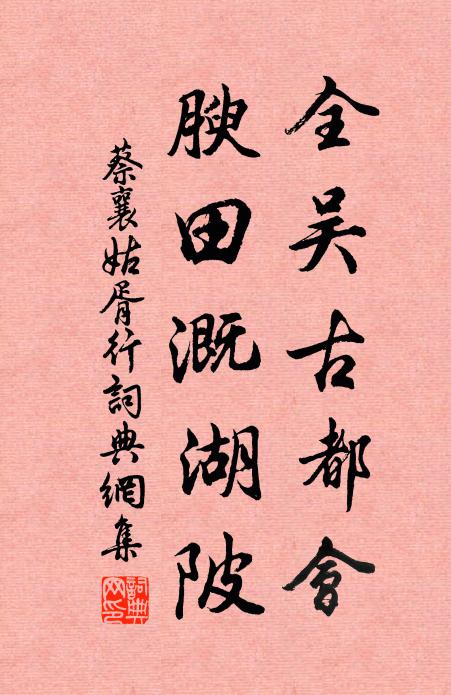 全吴古都會
腴田溉湖陂
蔡襄姑胥行詞典網集
詞典網印